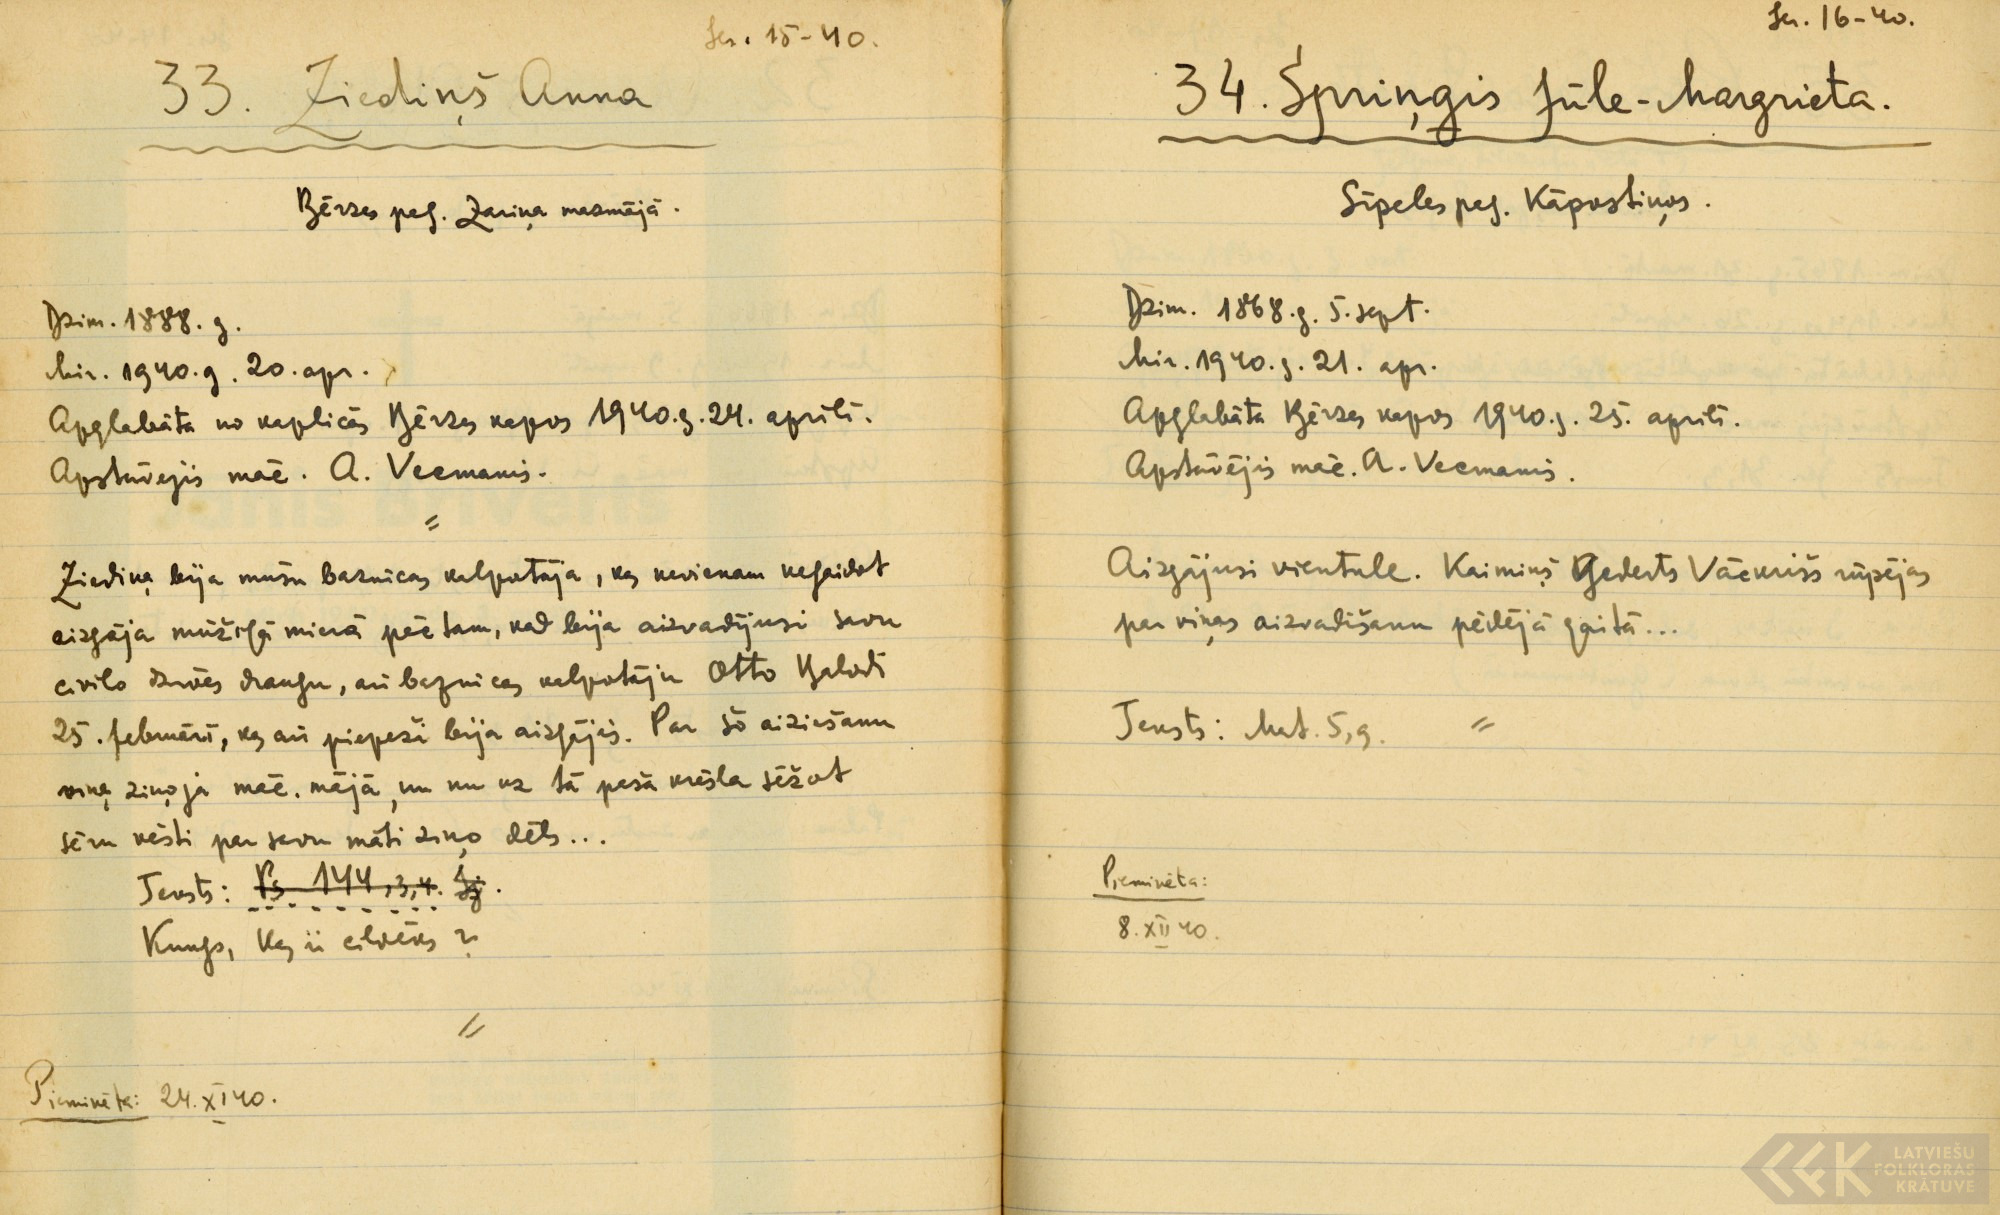 Ier. 15-40.
33. Ziediņš Anna
Bērzes pag. Zariņa mazmājā.
Dzim. 1888. g.
Mir. 1940. g. 20. apr.
Apglabāta no kaplicās Bērzes kapos 1940. g. 24. aprīlī.
Apstāvējis māc. A. Vecmanis.
=
Ziediņa bija mūsu baznīcas kalpotāja, kas nevienam negaidot
aizgāja mūžīgā mierā pēc tam, kad bija aizvadījusi savu
civilo dzīves draugu, arī baznīcas kalpotāju Otto Balodi
25. februārī, kas arī piepeši bija aizgājis. Par šo aiziešanu
viņa ziņoja māc. mājā, un nu uz tā paša krēsla sēžot
sēru vēsti par savu māti ziņo dēls...
Teksts: Ps 144,3,4.
Kungs, kas ir cilvēks?
=
Pieminēta: 24. XI 40.
Ier. 16-40.
34. Spriņģis Jūle-Margrieta.
Sīpeles pag. Kāpostiņos.
Dzim. 1868. g. 5. sept.
Mir. 1940. g. 21. apr.
Apglabāta Bērzes kapos 1940. g. 25. aprīlī.
Apstāvējis māc. A. Vecmanis.
Aizgājusi vientule. Kaimiņš Ģederts Vāckrišs rūpējas
par viņas aizvadīšanu pēdējā gaitā...
Teksts: Mat. 5,9. =
Pieminēta:
8. XII 40.
LATVIEŠU
FOLKLORAS
KRĀTUVE